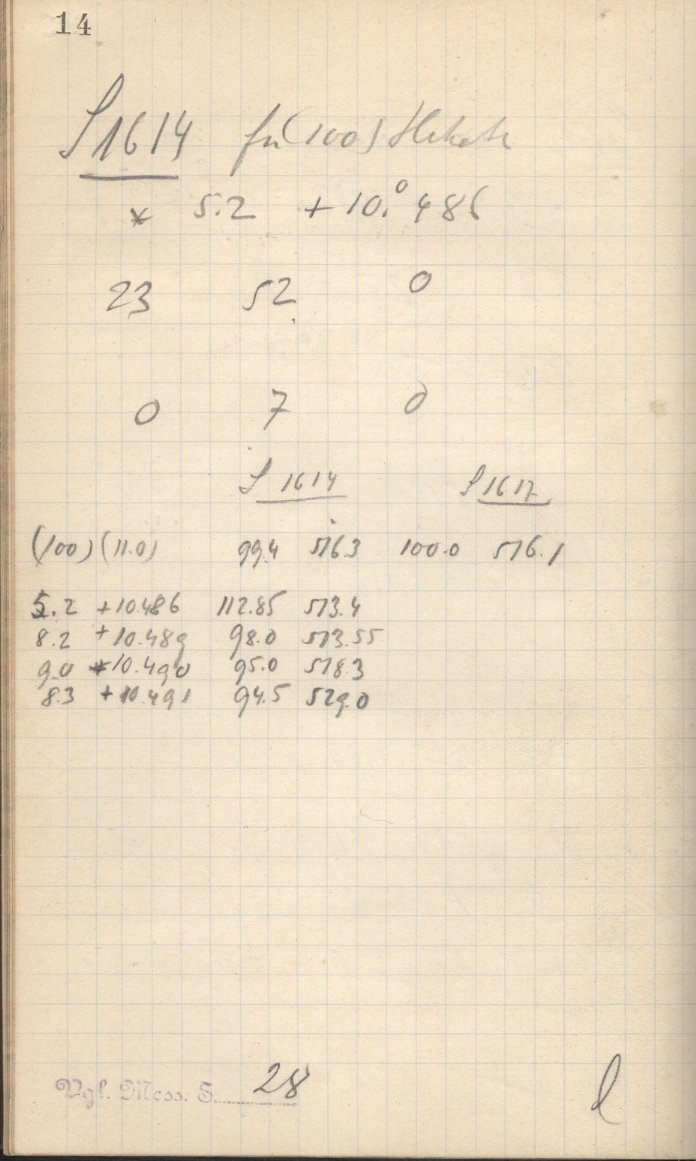 14
S 1614 für (100) Hekate
* 5.2 + 10.°486
23 52 0
0 7 0
S 1614 S 1617
(100) (11.0) 99.4 516.3 100.0 516.1
5.2 +10.486 112.85 513.4
8.2 +10.489 98.0 513.55
9.0 +10.490 95.0 518.3
8.3 +10.491 94.5 529.0
Vgl. Mess. S. 28